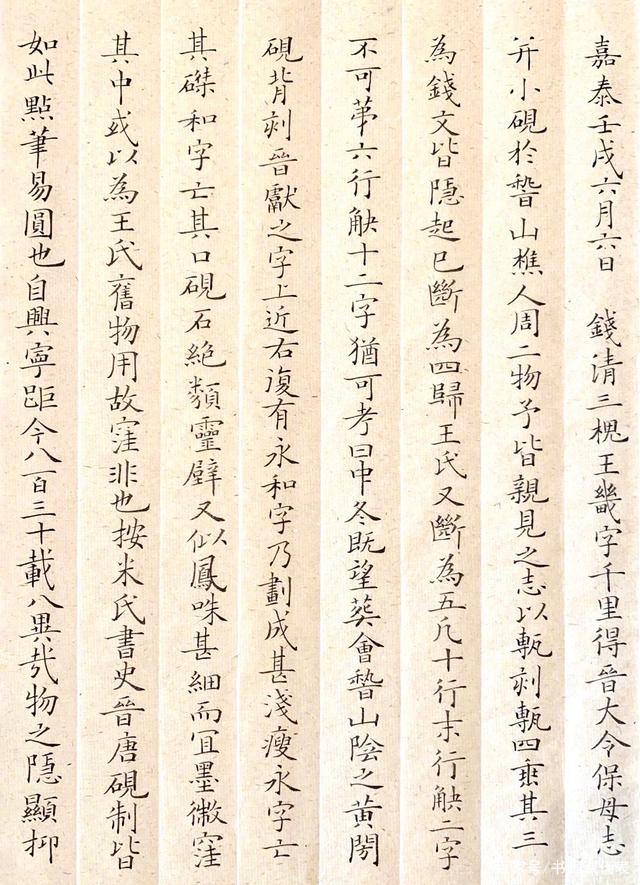 嘉泰壬戌六月六日 錢清三槐王畿字千里得晉大令保母志
并小硯於稽山樵人周二物予皆親見之志以甎刻甎四垂其三
為錢文皆隱起已斷為四歸王氏又斷為五凡十行末行缺二字
不可苐六行缺十二字猶可考曰中冬既望葬會稽山陰之黃閍
硯背刻晉獻之字上近右復有永和字乃劃成甚淺瘦永字亡
其磔和字亡其口硯石絕類靈壁又似鳳咮甚細而宜墨微窪
其中或以為王氏舊物用故窪非也按米氏書史晉唐硯制皆
如此點筆易圓也自興寧距今八百三十載八異哉物之隱顯抑